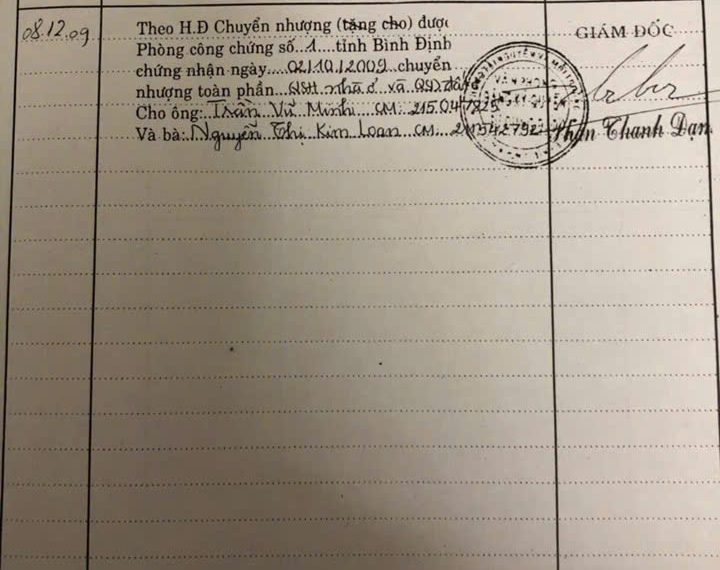 08.12.09
Theo H.Đ Chuyển nhượng (tặng cho) được
Phòng công chứng số 1 tỉnh Bình Định
chứng nhận ngày 02/10/2009 chuyển
nhượng toàn phần QSH nhà ở và QSD đất
Cho ông: Trần Vũ Minh CM 215047828
Và bà: Nguyễn Thị Kim Loan CM 211542792
GIÁM ĐỐC
Phan Thanh Dạn